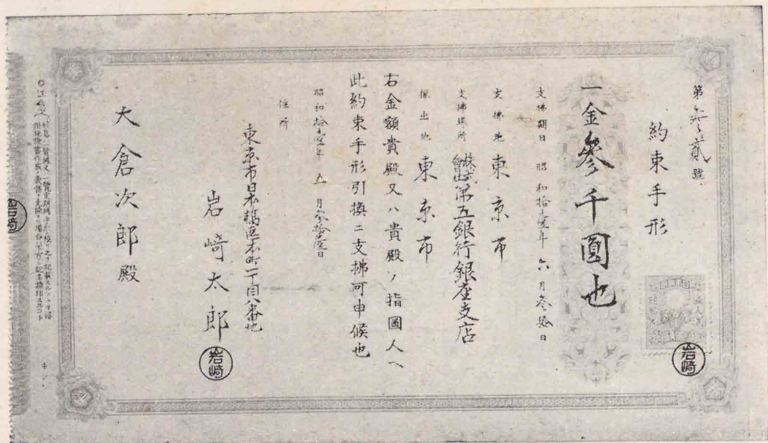 第參貳號
約束手形
一金參千圓也
支拂期日 昭和拾壹年六月參拾日
支拂地 東京市
支拂場所 株式會社第五銀行銀座支店
振出地 東京市
右金額貴殿又ハ貴殿ノ指圖人ヘ
此約束手形引換ニ支拂可申候也
昭和拾壹年五月參拾壹日
住所 東京市日本橋區本町一丁目八番地
岩崎太郎
岩崎
大倉次郎殿
岩崎
岩崎